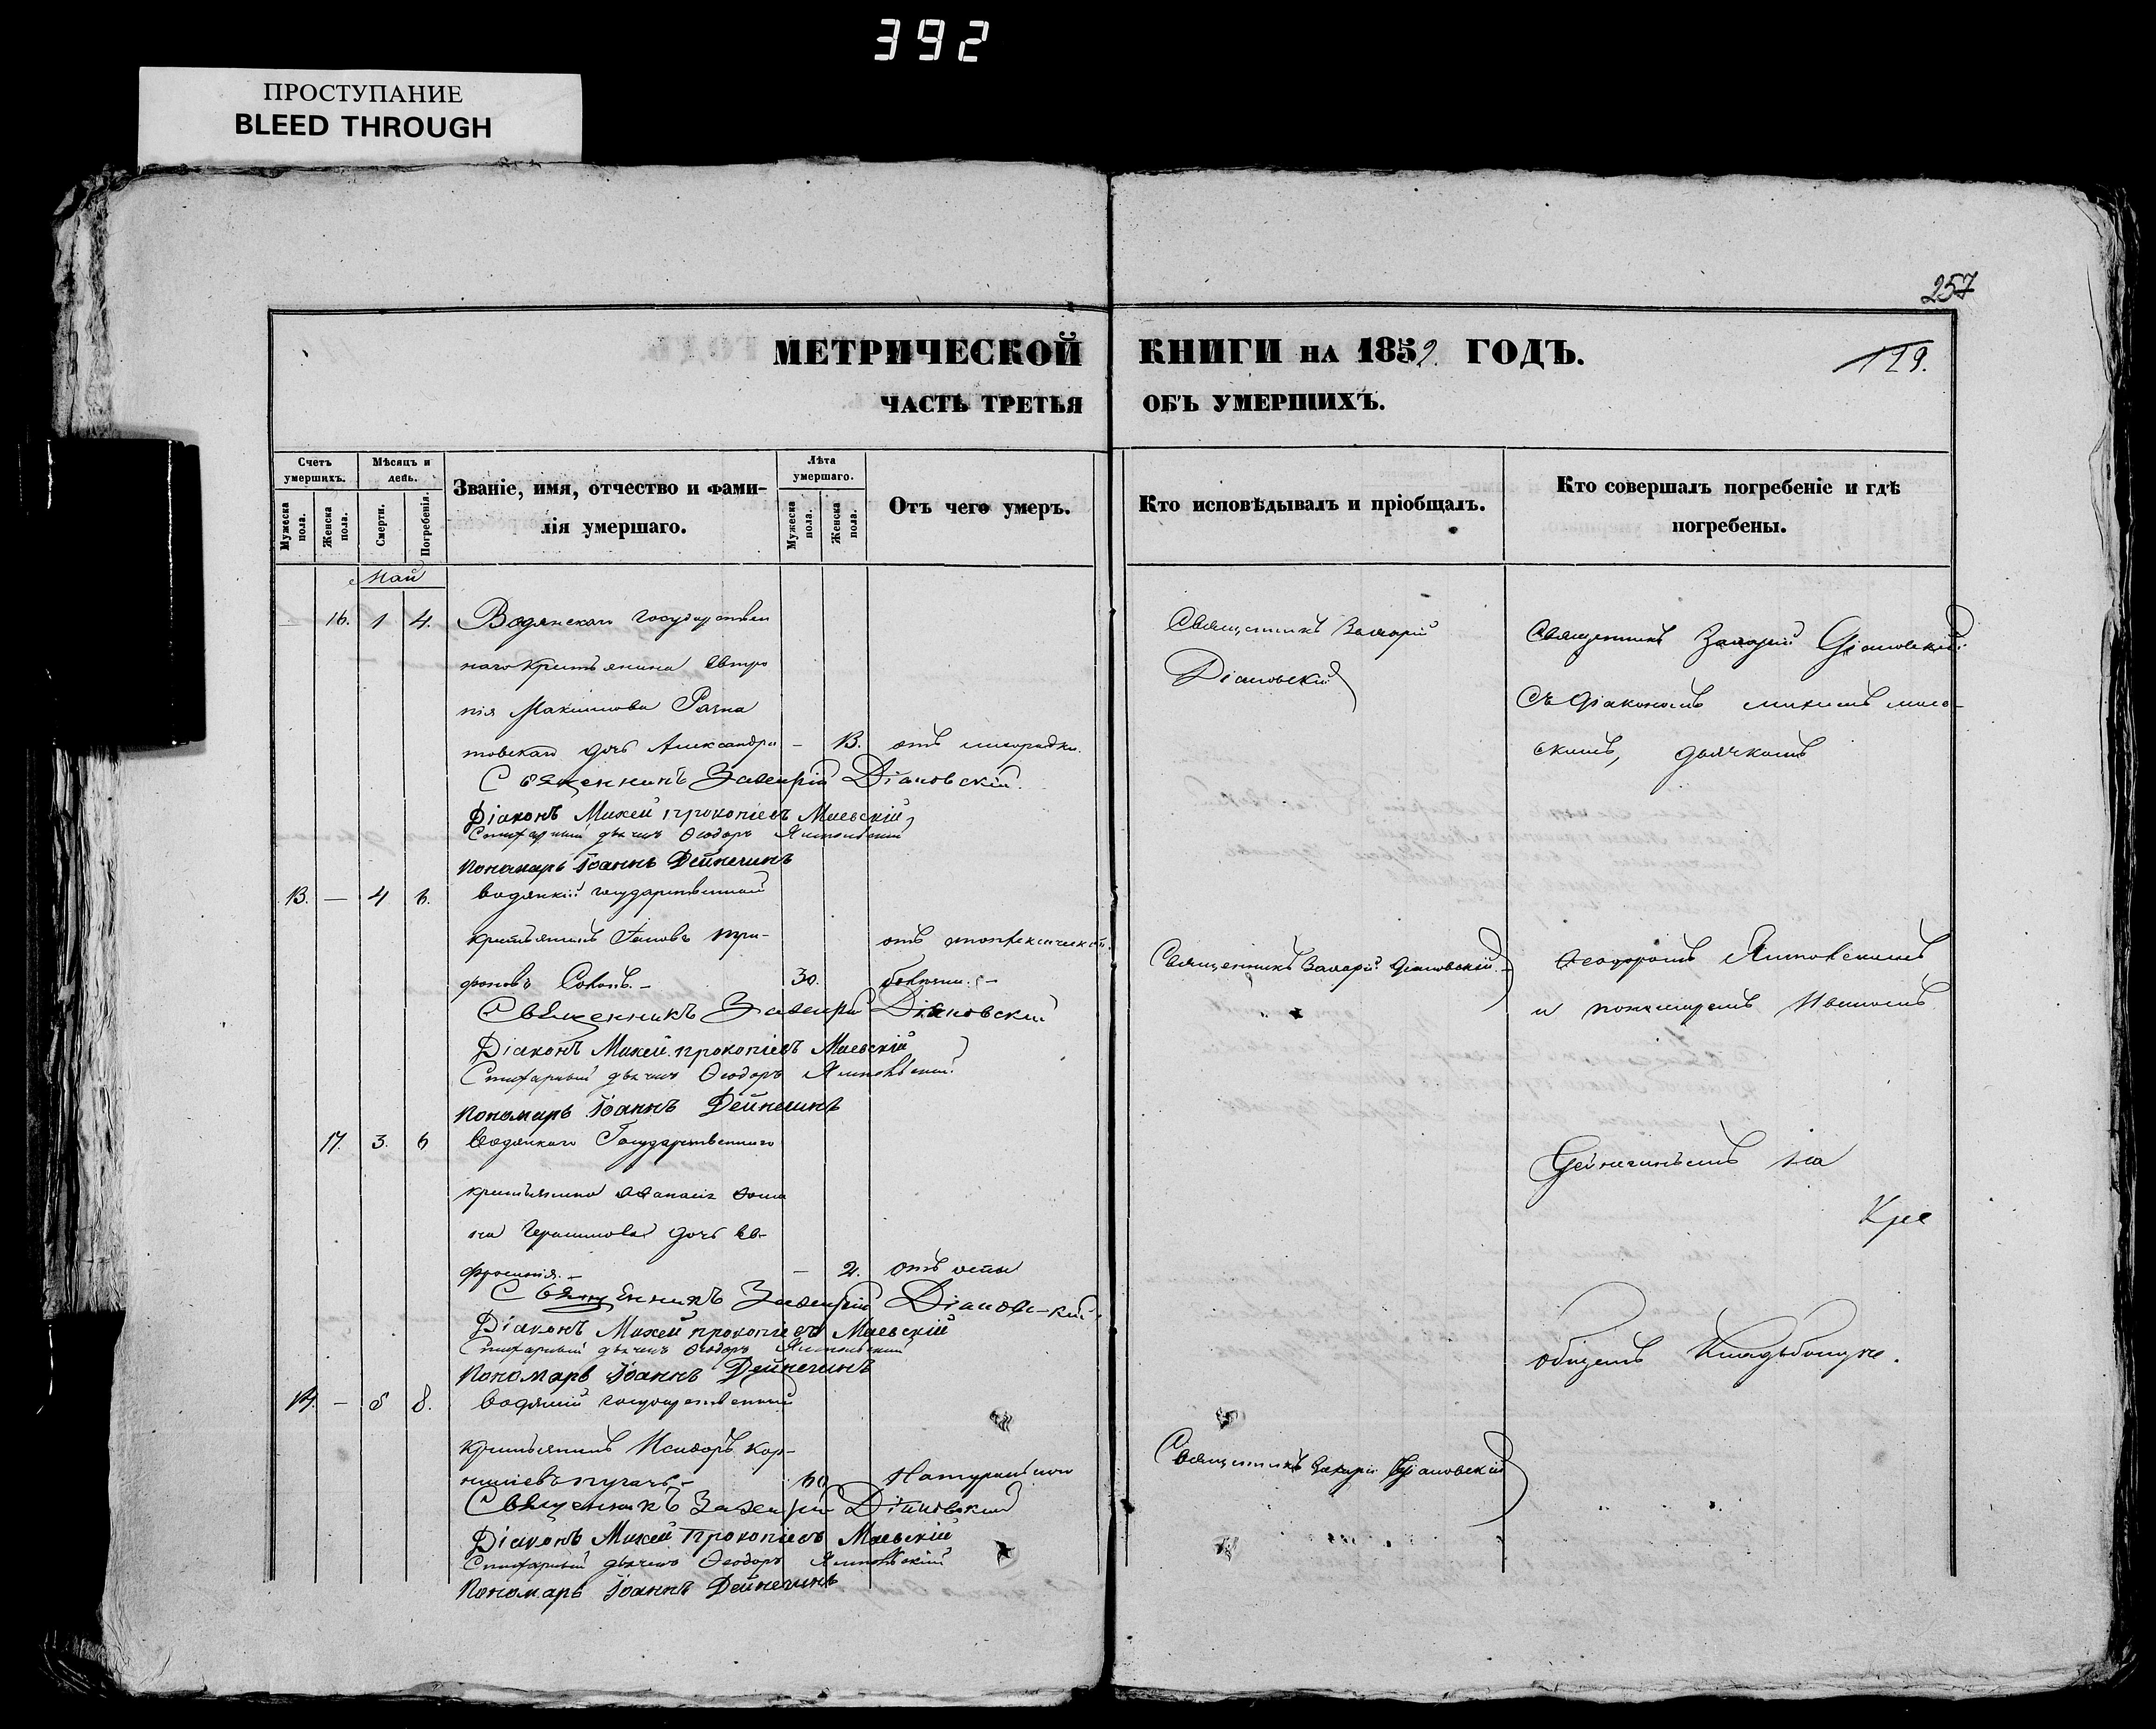 392
ПРОСТУПАНИЕ
BLEED THROUGH
257
МЕТРИЧЕСКОЙ КНИГИ НА 1852 ГОДЪ.
119.
ЧАСТЬ ТРЕТЬЯ ОБЪ УМЕРШИХЪ.
Счетъ умершихъ.
Мужеска пола.
Женска пола.
Мѣсяцъ и день.
Смерти.
Погребенія.
Званіе, имя, отчество и фами-
лія умершаго.
Лѣта умершаго.
Мужеска пола.
Женска пола.
Отъ чего умеръ.
Кто исповѣдывалъ и пріобщалъ.
Кто совершалъ погребеніе и гдѣ
погребены.
Май
16. 1 4. Водянскаго государствен
наго крестьянина Евтро
пія Максимова
товскаго дочь Александра — 13. отъ лихорадки.
Священникъ Захарій Діановскій.
Діаконъ Михей Прокопіевъ Маевскій
Стихарный дьячекъ Ѳеодоръ
Пономарь Іоаннъ Дейнегинъ
Священникъ Захарій
Діановскій
Священникъ Захарій Діановскій
съ Діакономъ Михеемъ Маев-
скимъ, дьячкомъ
13. — 4 6. Водянскій государственный
крестьянинъ Іаковъ Три-
фоновъ 30.
Священникъ Захарій Діановскій
Діаконъ Михей Прокопіевъ Маевскій
Стихарный дьячекъ Ѳеодоръ
Пономарь Іоаннъ Дейнегинъ
Священникъ Захарій Діановскій
Ѳеодоромъ
и пономаремъ Иваномъ
17. 3. 6 Водянскаго Государственнаго
крестьянина Аѳанасія Ѳоми
на Герасимова дочь Ев-
фросинія. — — 2. отъ оспы
Священникъ Захарій Діановскій
Діаконъ Михей Прокопіевъ Маевскій
Стихарный дьячекъ Ѳеодоръ
Пономарь Іоаннъ Дейнегинъ
Дейнегинымъ на
общемъ кладбищѣ.
14. — 8. Водянскій государственный
крестьянинъ Исидоръ Кор-
ниліевъ 60 Натурально
Священникъ Захарій Діановскій
Діаконъ Михей Прокопіевъ Маевскій
Стихарный дьячекъ Ѳеодоръ
Пономарь Іоаннъ Дейнегинъ
Священникъ Захарій Діановскій